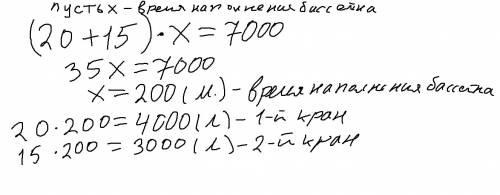 пусть x - время наполнения бассейна
(20+15)·x=7000
35x=7000
x=200(м.) - время наполнения бассейна
20·200=4000(л) - 1-й кран
15·200=3000(л) - 2-й кран